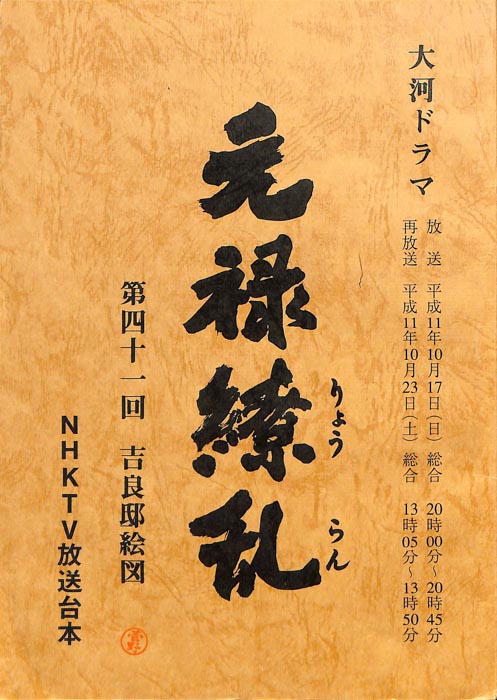 大河ドラマ
放送 平成11年10月17日(日) 総合 20時00分～20時45分
再放送 平成11年10月23日(土) 総合 13時05分～13時50分
元禄繚乱
りょう らん
第四十一回 吉良邸絵図
NHKTV放送台本